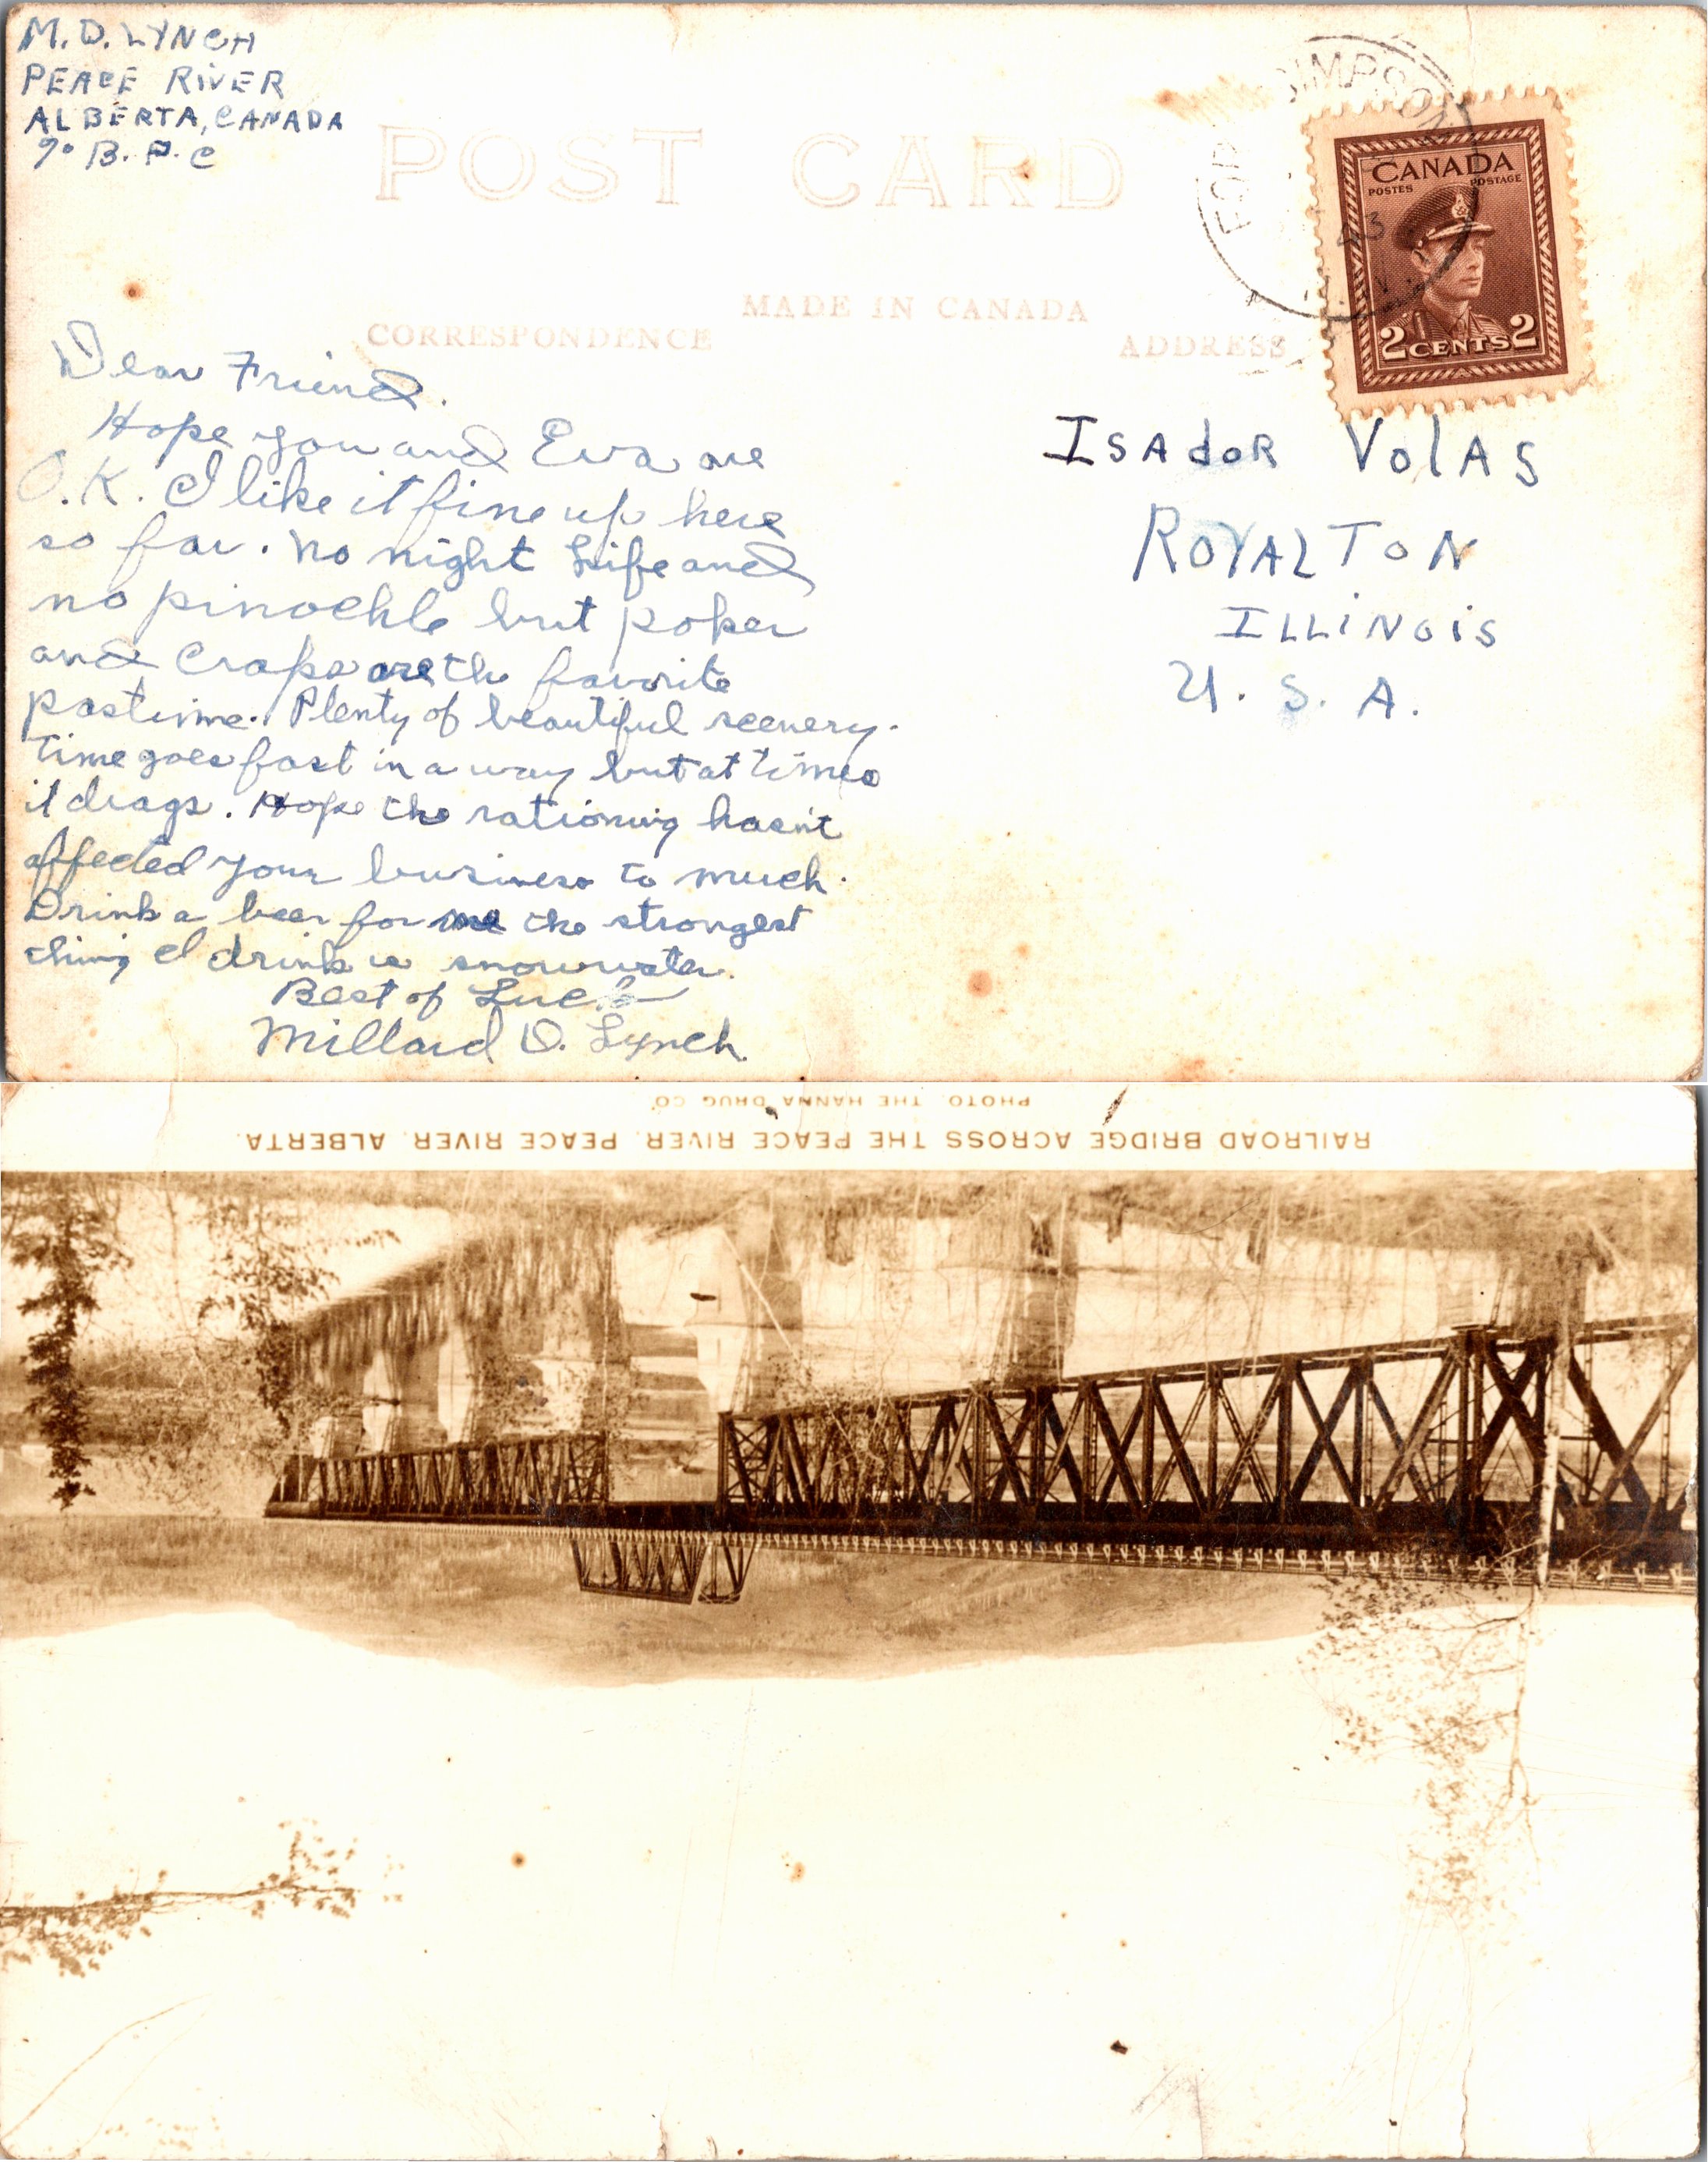 M. D. LYNCH
PEACE RIVER
ALBERTA, CANADA
% B. P. C
POST CARD
MADE IN CANADA
CORRESPONDENCE
ADDRESS
SIMPSON
43
CANADA
POSTES POSTAGE
2 CENTS 2
Dear Friend.
Hope you and Eva are
O.K. I like it fine up here
so far. No night Life and
no pinochle but poker
and Craps are the favorite
pastime. Plenty of beautiful scenery.
time goes fast in a way but at times
it drags. Hope the rationing hasn't
affected your business to much.
Drink a beer for me the strongest
thing I drink is snowwater.
Best of Luck
Millard D. Lynch.
ISAdOR VOlAS
ROYALTON
ILLINOIS
U. S. A.
RAILROAD BRIDGE ACROSS THE PEACE RIVER. PEACE RIVER. ALBERTA.
PHOTO. THE HANNA DRUG CO.